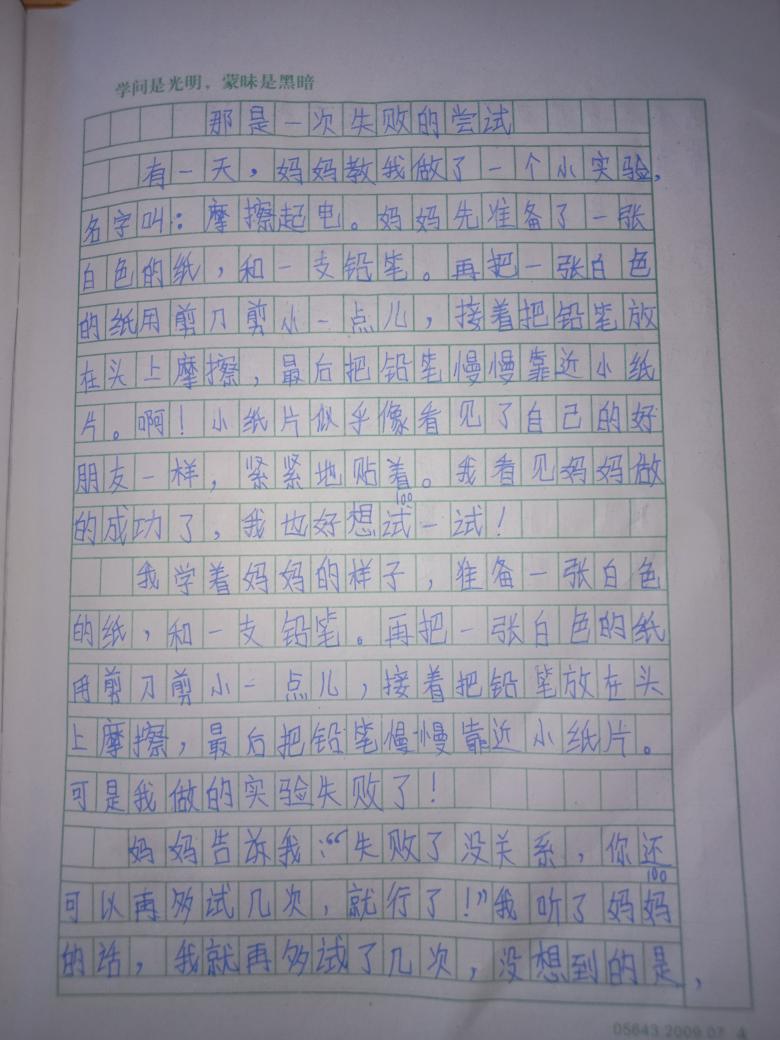 学问是光明，蒙昧是黑暗
那是一次失败的尝试
有一天，妈妈教我做了一个小实验，
名字叫：摩擦起电。妈妈先准备了一张
白色的纸，和一支铅笔。再把一张白色
的纸用剪刀剪小一点儿，接着把铅笔放
在头上摩擦，最后把铅笔慢慢靠近小纸
片。啊！小纸片似乎像看见了自己的好
朋友一样，紧紧地贴着。我看见妈妈做
100
的成功了，我也好想试一试！
我学着妈妈的样子，准备一张白色
的纸，和一支铅笔。再把一张白色的纸
用剪刀剪小一点儿，接着把铅笔放在头
上摩擦，最后把铅笔慢慢靠近小纸片。
可是我做的实验失败了！
妈妈告诉我：“失败了没关系，你还
100
可以再多试几次，就行了！”我听了妈妈
的话，我就再多试了几次，没想到的是，
05643 2009.07 4